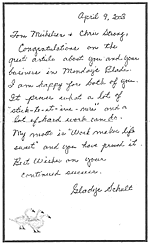 April 9, 2003
Tom Mischker & Chris Strong,
Congratulations on the
great article about you and your
business in Monday's Blade.
I am happy for both of you.
It proves what a lot of
"stick-to-it-ive-ness" and a
lot of hard work can do.
My motto is "Work makes life
sweet" and you have proved it.
Best Wishes on your
continued success.
Gladys Schult